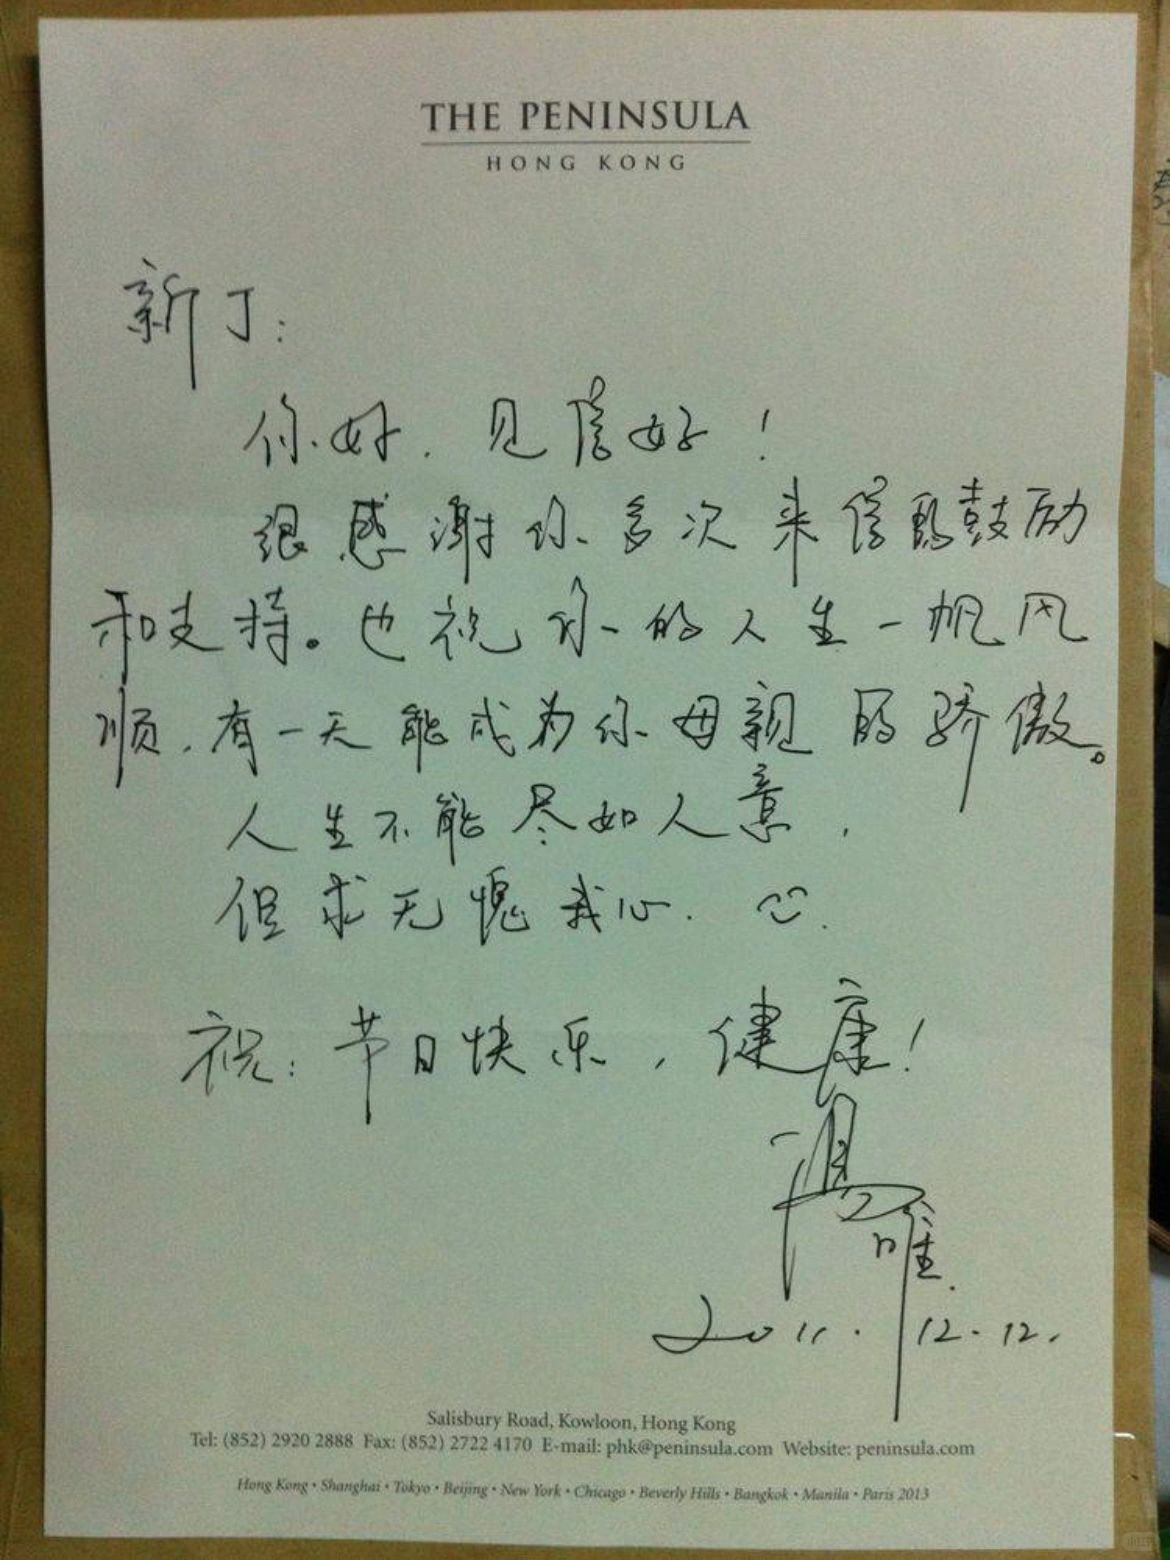 THE PENINSULA
HONG KONG
新丁:
你好.见信好!
很感谢你多次来信的鼓励
和支持。也祝你的人生一帆风
顺.有一天能成为你母亲的骄傲。
人生不能尽如人意,
但求无愧我心.
祝:节日快乐,健康!
汤唯.
2011.12.12.
Salisbury Road, Kowloon, Hong Kong
Tel: (852) 2920 2888 Fax: (852) 2722 4170 E-mail: phk@peninsula.com Website: peninsula.com
Hong Kong • Shanghai • Tokyo • Beijing • New York • Chicago • Beverly Hills • Bangkok • Manila • Paris 2013